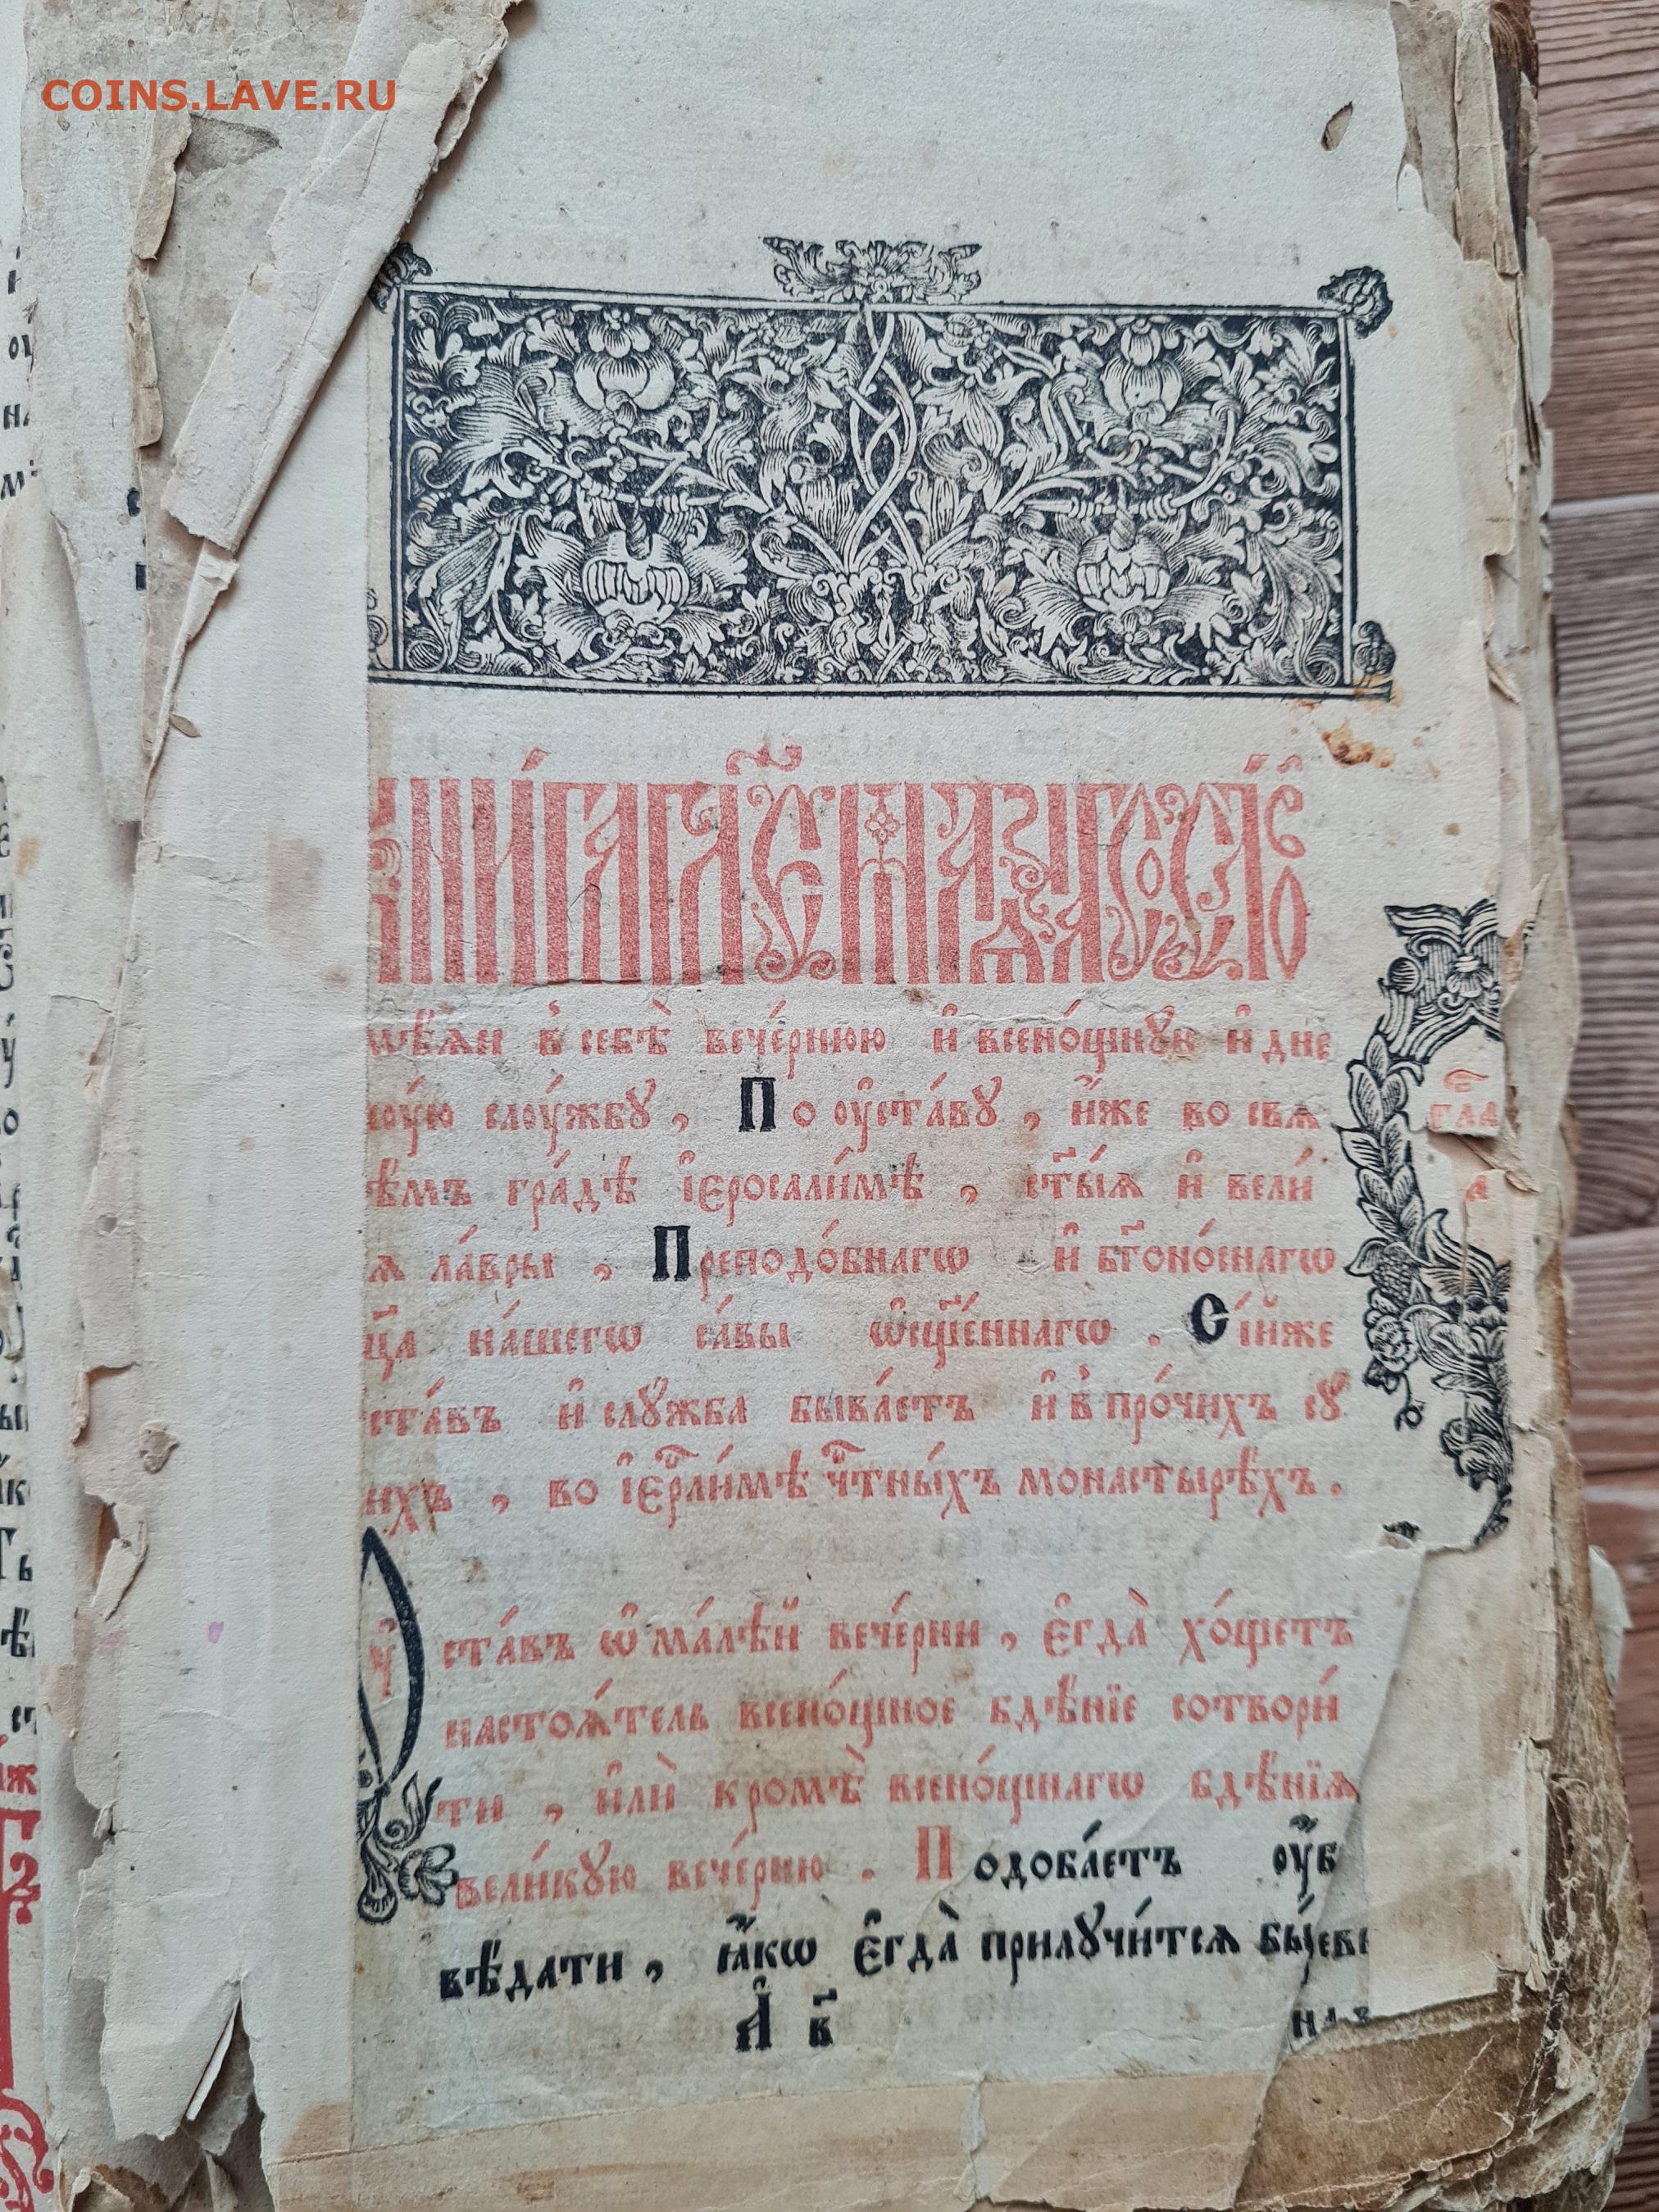 COINS.LAVE.RU
КНИ́ГА ГЛ҃ЕМАЯ
имѣ́ѧи в̾ себѣ̀ вече́рнюю и҆ всено́щнꙋю и҆ дне
ную слꙋ́жбꙋ , По ᲂу҆ста́вꙋ , и҆́же во свѧ
ѣмъ гра́дѣ і҆єросали́мѣ , ст҃ы́ѧ и҆ вели́
ѧ ла́вры , Преподо́бнагѡ и҆ бг҃оно́снагѡ
ц҃а на́шегѡ са́вы ѡ҆сщ҃е́ннагѡ . Сі́йже
ста́въ и҆ слꙋ́жба быва́етъ и҆ в̾ про́чихъ сꙋ
ихъ , во і҆єрⷭ҇ли́мѣ чⷭ҇тны́хъ монастырѣ́хъ .
гла
а
ᲂу҆
ста́въ ѡ҆ ма́лѣй вече́рни , є҆гда̀ хо́щетъ
настоѧ́тель всено́щное бдѣ́нїе сотвори́
ти , и҆лѝ кромѣ̀ всено́щнагѡ бдѣ́нїѧ
вели́кꙋю вече́рню . Подоба́етъ ᲂу҆́б
вѣ́дати , ꙗ҆́кѡ є҆гда̀ прилꙋчи́тсѧ
А҆ в҃